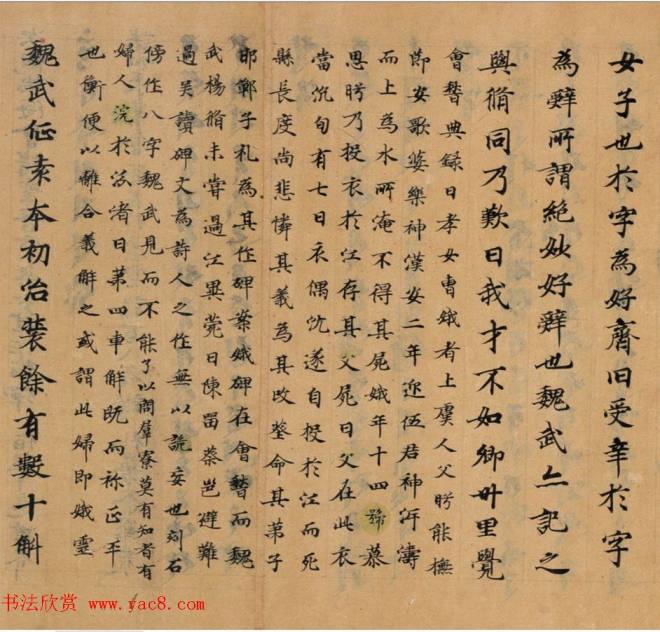 女子也於字為好齊臼受辛於字
為辤所謂絕妙好辤也魏武亦記之
與脩同乃歎曰我才不如卿卅里覺
會嵇典錄曰孝女曹娥者上虞人父盱能撫
節安歌婆樂神漢安二年迎伍君神泝濤
而上為水所淹不得其屍娥年十四號慕
思盱乃投衣於江存其父屍曰父在此衣
當沉旬有七日衣偶沉遂自投於江而死
縣長度尚悲憐其義為其改葬命其弟子
邯鄲子礼為其作碑案娥碑在會嵇而魏
武楊脩未嘗過江異菀曰陳留蔡邕避難
過吳讀碑文為詩人之作無以詭妄也刻石
傍作八字魏武見而不能了以問羣寮莫有知者有
婦人浣於汾渚曰第四車解既而祢正平
也衡便以離合義解之或謂此婦即娥靈
魏武征袁本初治裝餘有數十斛
书法欣赏 www.yac8.com